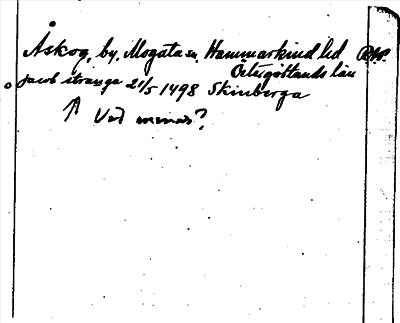 Åskog, by, Mogata sn, Hammarkind hd
Östergötlands län
Jacob strange 21/5 1498 Skinberga
↑ Vad menas?